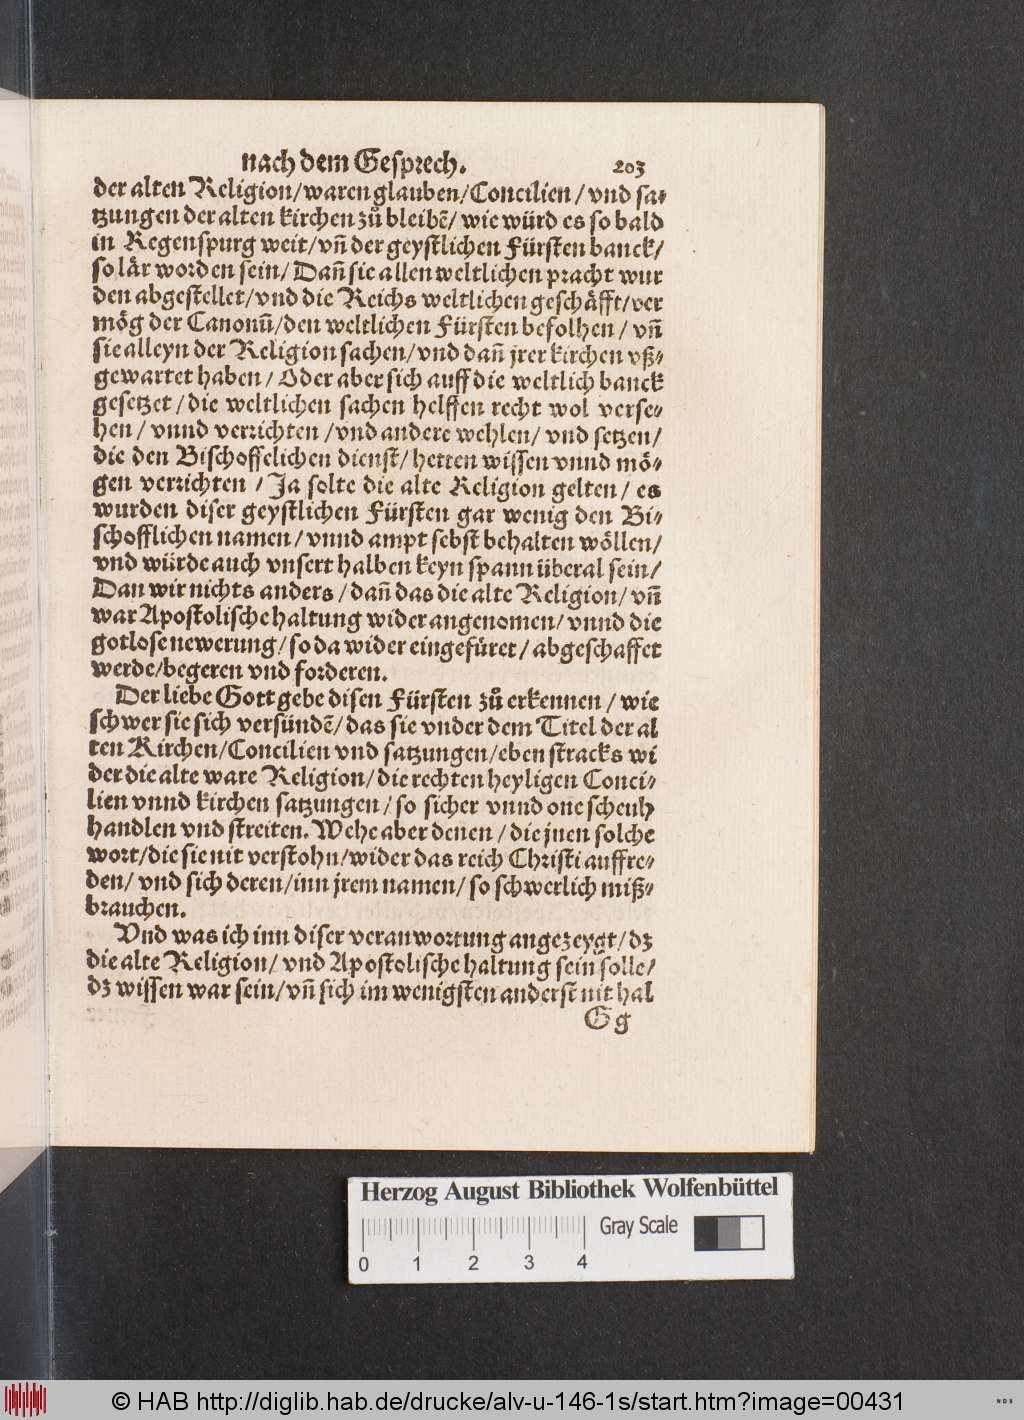 nach dem Gesprech. 203
der alten Religion/waren glauben/Concilien/vnd sa⸗
tzungen der alten kirchen zů bleibē/wie würd es so bald
in Regenspurg weit/vñ der geystlichen Fürsten banck/
so lär worden sein/Dañ sie allen weltlichen pracht wur
den abgestellet/vnd die Reichs weltlichen geschäfft/ver
mög der Canonū/den weltlichen Fürsten befolhen/vñ
sie alleyn der Religion sachen/vnd dañ jrer kirchen vß⸗
gewartet haben/Oder aber sich auff die weltlich banck
gesetzet/die weltlichen sachen helffen recht wol verse⸗
hen/vnnd verrichten/vnd andere wehlen/vnd setzen/
die den Bischoffelichen dienst/hetten wissen vnnd mö⸗
gen verrichten/Ja solte die alte Religion gelten/es
wurden diser geystlichen Fürsten gar wenig den Bi⸗
schofflichen namen/vnnd ampt sebst behalten wöllen/
vnd würde auch vnsert halben keyn spann überal sein/
Dan wir nichts anders/dañ das die alte Religion/vñ
war Apostolische haltung wider angenomen/vnnd die
gotlose newerung/so da wider eingefüret/abgeschaffet
werde/begeren vnd forderen.
Der liebe Gott gebe disen Fürsten zů erkennen/wie
schwer sie sich versündē/das sie vnder dem Titel der al
ten Kirchen/Concilien vnd satzungen/eben stracks wi
der die alte ware Religion/die rechten heyligen Conci⸗
lien vnnd kirchen satzungen/so sicher vnnd one scheuh
handlen vnd streiten. Wehe aber denen/die jnen solche
wort/die sie nit verstohn/wider das reich Christi auffre⸗
den/vnd sich deren/inn jrem namen/so schwerlich miß⸗
brauchen.
Vnd was ich inn diser veranwortung angezeygt/dz
die alte Religion/vnd Apostolische haltung sein solle/
dz wissen war sein/vñ sich im wenigsten anderst nit hal
Gg
Herzog August Bibliothek Wolfenbüttel
Gray Scale
0 1 2 3 4
© HAB http://diglib.hab.de/drucke/alv-u-146-1s/start.htm?image=00431